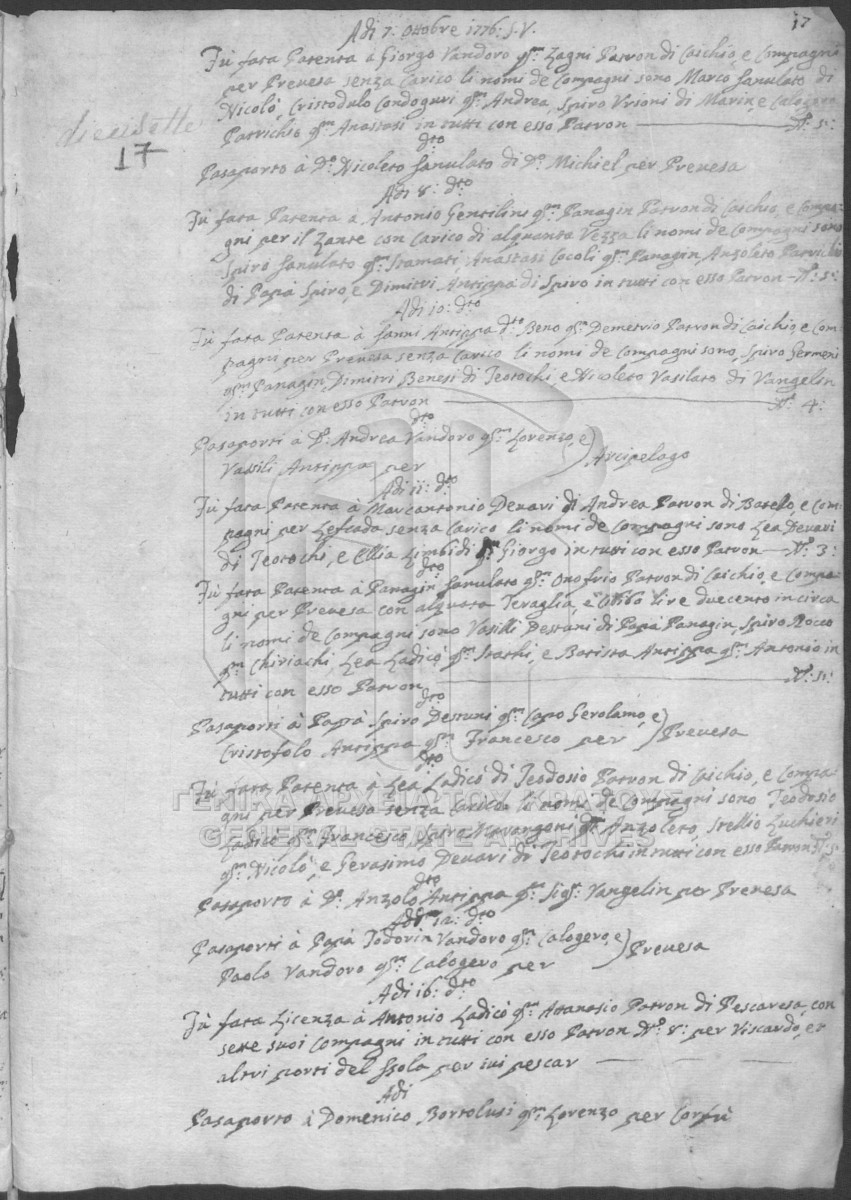 17
Adi 7: Ottobre 1776: S.V.
Fù fata Patenta à Giorgo Vandoro qm̃ Zagni Patron di Caichio, e Compagni
per Prevesa senza Carico li nomi de Compagni sono Marco Sanulato di
Nicolò, Cristodulo Condoguri qm̃ Andrea, Spiro Vrioni di Marin, e Calogero
Patrichio qm̃ Anastasi in tutti con esso Patron — N.º 5:
diecisette
17
dto
Pasaporto à D.º Nicoleto Sanulato di D.º Michiel per Prevesa
Adi 8: dto
Fù fata Patenta à Antonio Gentilini qm̃ Panagin Patron di Caichio, e Compa-
gni per il Zante con Carico di alquanta Vezza li nomi de Compagni sono
Spiro Sanulato qm̃ Stamati, Anastasi Cocoli qm̃ Panagin, Anzoleto
di Papà Spiro, e Dimitri Antippa di Spiro in tutti con esso Patron — N.º 5:
Adi 10: dto
Fù fata Patenta à Janni Antippa dto Beno qm̃ Demetrio Patron di Caichio, e Com-
pagni per Prevesa senza Carico li nomi de Compagni sono, Spiro Germeni
qm̃ Panagin, Dimitri Benesi di Teotochi, e Nicoleto Vasilato di Vangelin
in tutti con esso Patron — N.º 4:
dto
Pasaporti à D.º Andrea Vandoro qm̃ Lorenzo, e
Vassili Antippa per ) Arcipelago
Adi 11: dto
Fù fata Patenta à Marcantonio Devari di Andrea Patron di Batelo, e com-
pagni per Lefcada senza Carico li nomi de Compagni sono Lea Devari
di Teotochi, e Ellia Limbidi qm̃ Giorgo in tutti con esso Patron — N.º 3:
dto
Fù fata Patenta à Panagin Sanulato qm̃ Onofrio Patron di Caichio, e Compa-
gni per Prevesa con alquata Teraglia, e Stiba lire duecento in circa
li nomi de Compagni sono Vasilli Destuni di Papà Panagin, Spiro Rocco
qm̃ Chiriachi, Lea Ladicò qm̃ Stathi, e Batista Antippa qm̃ Antonio in
tutti con esso Patron — N.º 5:
dto
Pasaporti à Papà Spiro Destuni qm̃ Capo Gerolamo, e
Cristofolo Antippa qm̃ Francesco per ) Prevesa
dto
Fù fata Patenta à Lea Ladicò di Teodosio Patron di Caichio, e Compa-
gni per Prevesa senza Carico li nomi de Compagni sono Teodosio
Ladicò qm̃ Francesco, Spiro Mavangoni qm̃ Anzoleto, Stellio Luchieri
qm̃ Nicolò, e Gerasimo Devari di Teotochi in tutti con esso Patron N.º 5
dto
Pasaporto à D.º Anzolo Antippa qm̃ Sigr. Vangelin per Prevesa
Adi 12: dto
Pasaporti à Papà Todorin Vandoro qm̃ Calogero, e
Paolo Vandoro qm̃ Calogero per ) Prevesa
Adi 16: dto
Fù fata Licenza à Antonio Ladicò qm̃ Attanasio Patron di Pescaresa, con
sette suoi Compagni in tutti con esso Patron N.º 8: per Viscardo, et
altri porti del Isola per ivi pescar —
Adi
Pasaporto à Domenico Bortolusi qm̃ Lorenzo per Corfù
ΓΕΝΙΚΑ ΑΡΧΕΙΑ ΤΟΥ ΚΡΑΤΟΥΣ
GENERAL STATE ARCHIVES